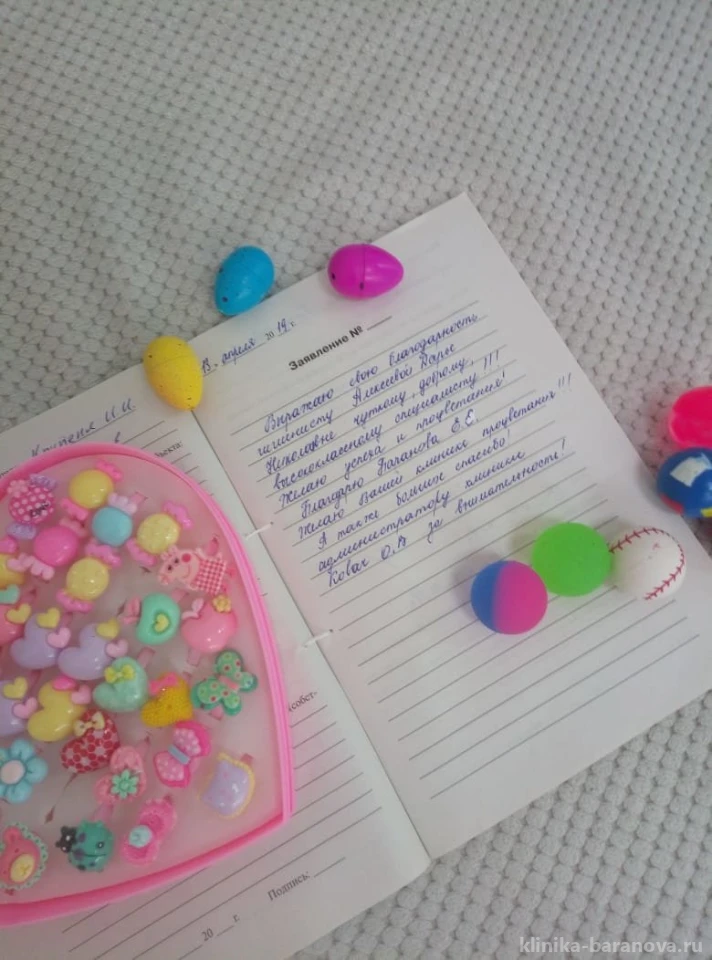 13 апреля 2019 г.
Заявление № ____
Выражаю свою благодарность
гигиенисту Алиевой Дарье
Николавне чуткому, доброму,
высококлассному специалисту!!!
Желаю успеха и процветания!
Благодарю Баранова Е.Е.
Желаю Вашей клинике процветания!!!
А также большое спасибо!
администратору клиники
Ковач О.А за внимательность!
И.И.
20 ___ г.
Подпись: ____
klinika-baranova.ru